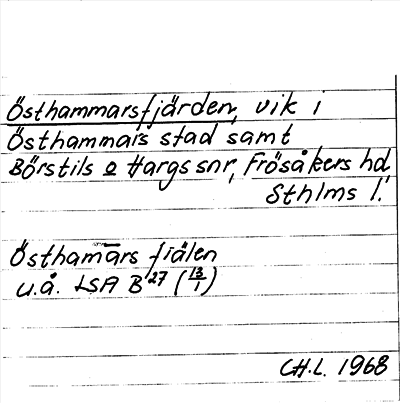 Östhammarsfjärden, vik i
Östhammars stad samt
Börstils o Hargs snr, Frösåkers hd,
Sthlms l.
Östham̄ars fiälen
u.å. LSA B 27 (13/1)
CH.L. 1968